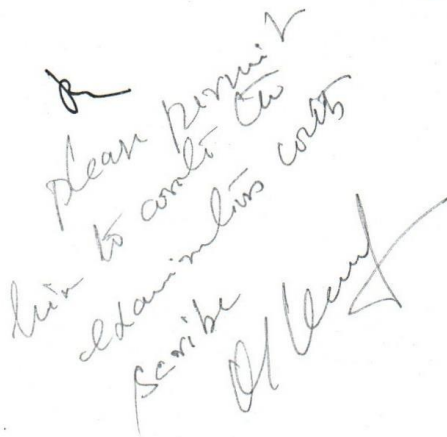 please permit
him to write the
examinations with
scribe